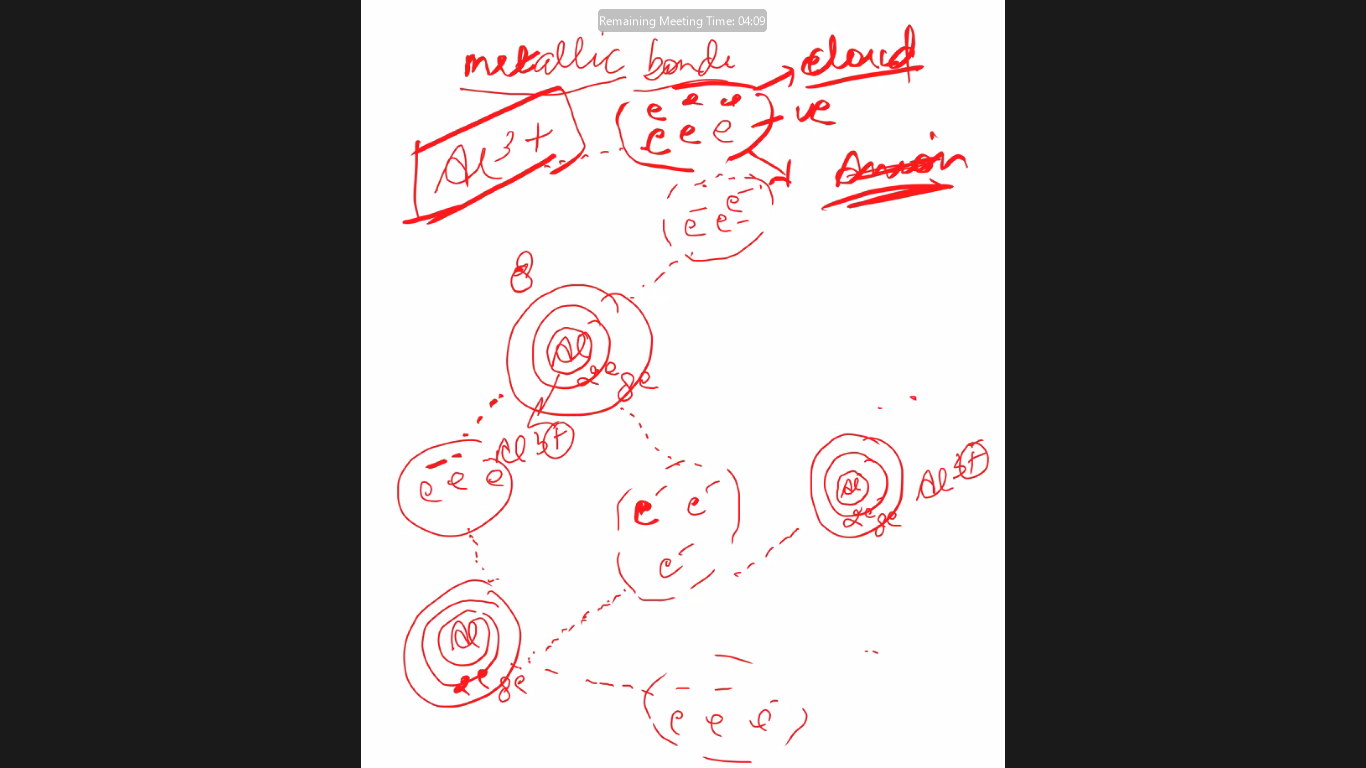 Remaining Meeting Time: 04:09
metallic bonde
cloud
Al³⁺
e e e
e e e
- ve
e⁻ e⁻ e⁻
8
Al
2e 8e
Al³⁺
e⁻ e⁻ e⁻
e⁻ e⁻
e⁻
Al
2e 8e
Al³⁺
Al
2e 8e
e⁻ e⁻ e⁻